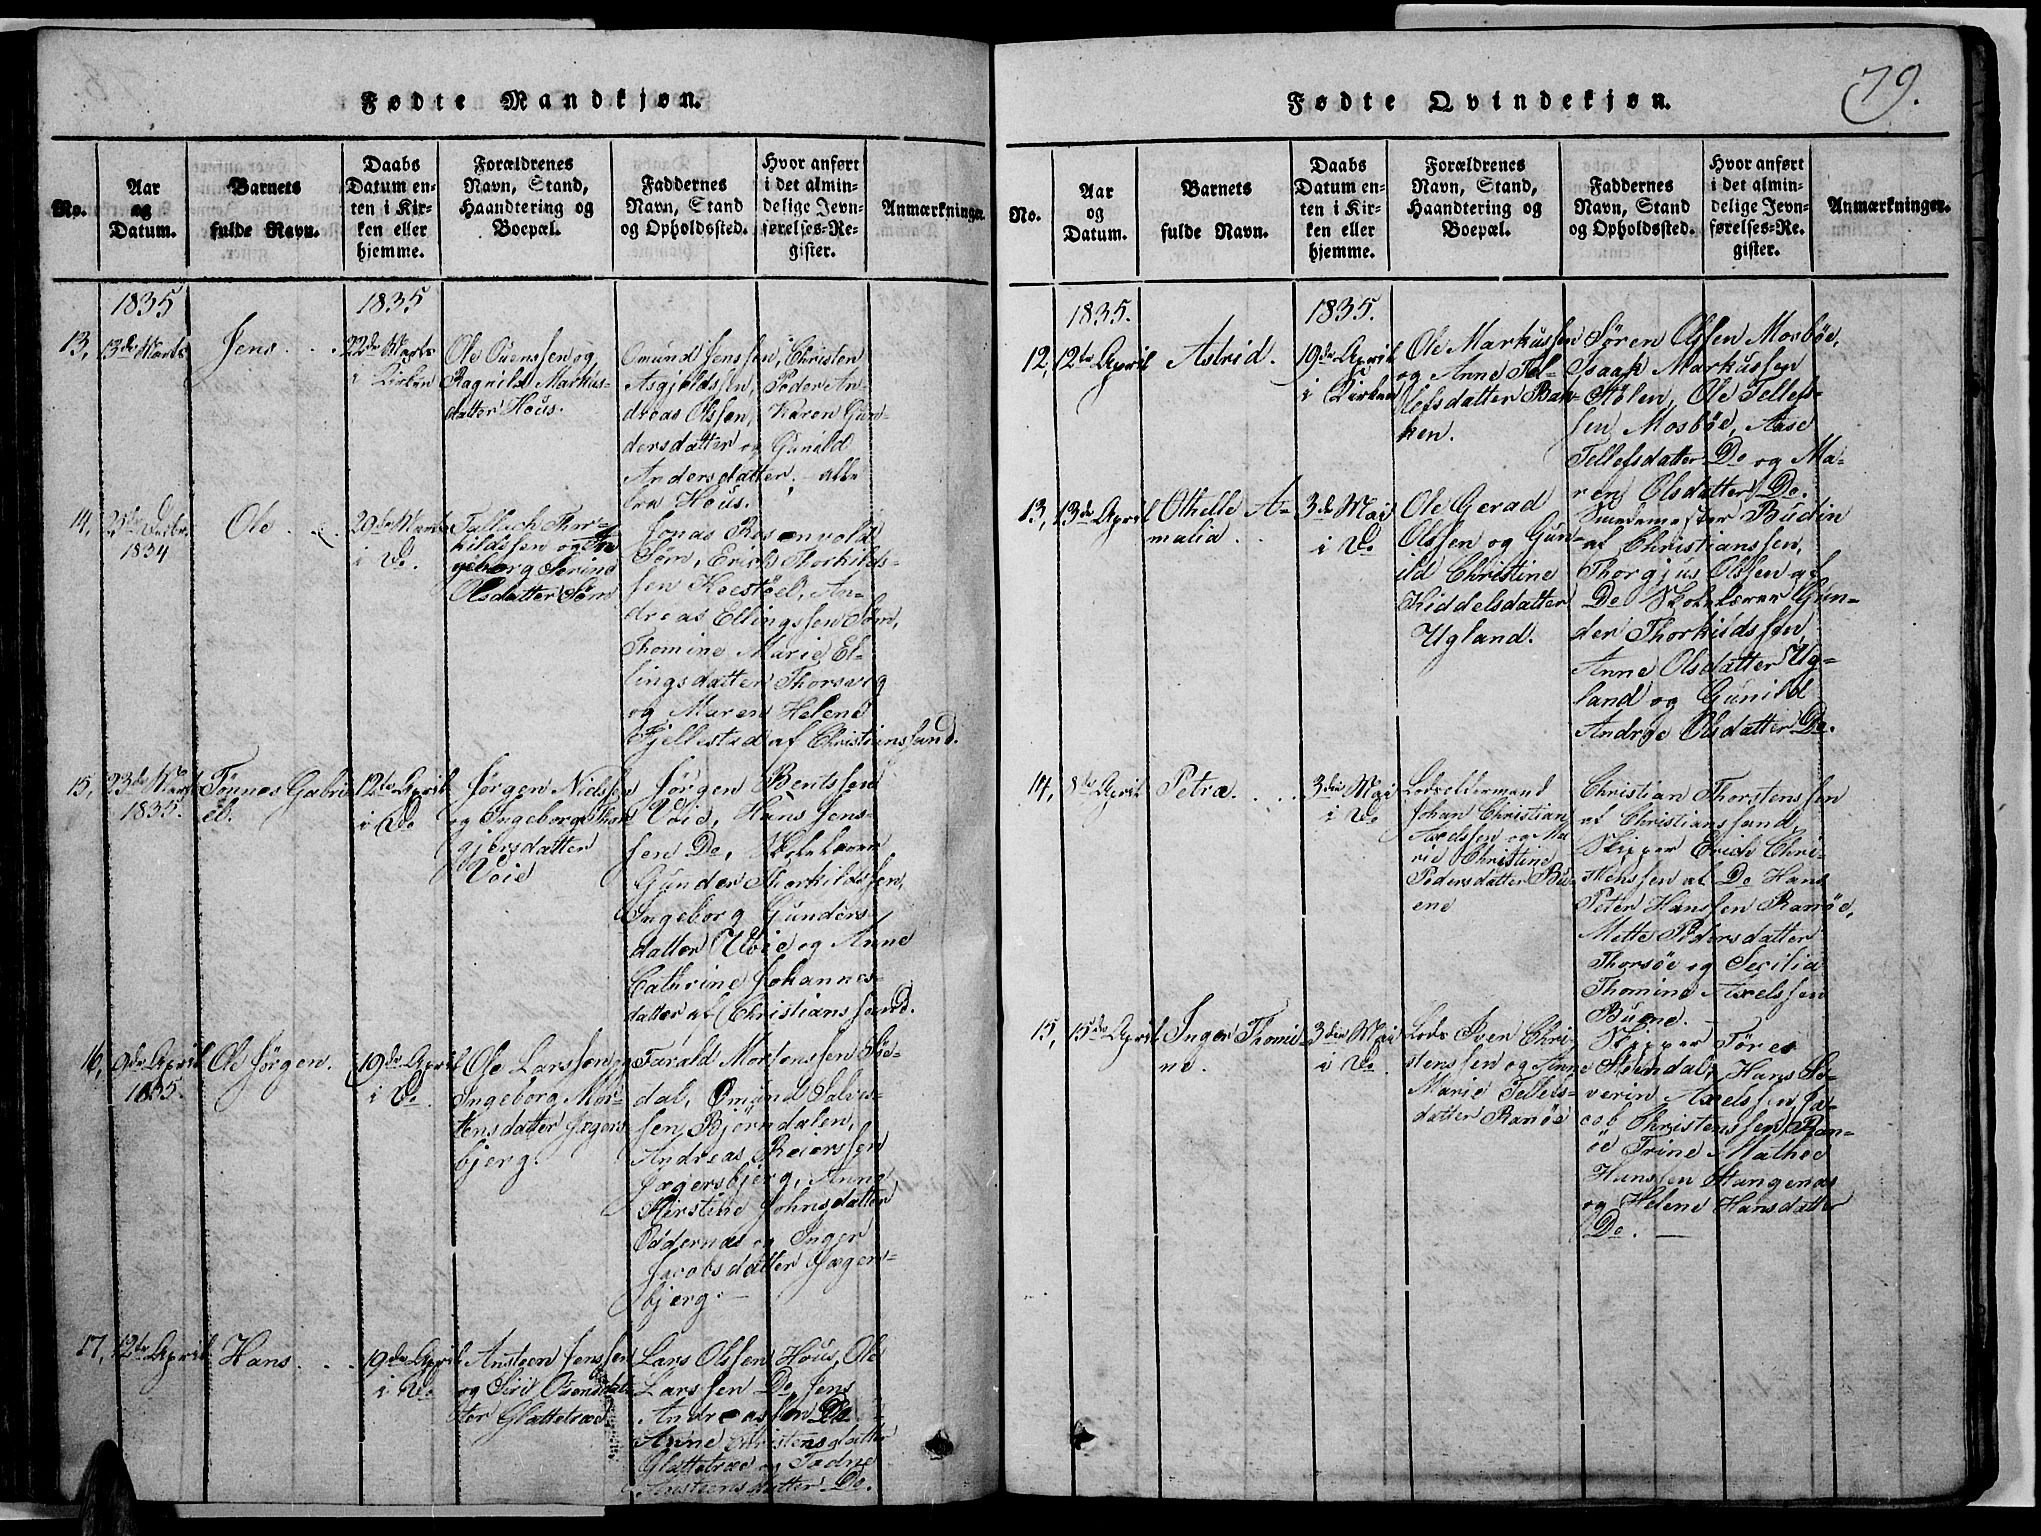 Fødte Mandkjøn.
No.
Aar
og
Datum.
Barnets
fulde Navn.
Daabs
Datum en-
ten i Kir-
ken eller
hjemme.
Forældrenes
Navn, Stand,
Haandtering og
Boepæl.
Faddernes
Navn, Stand
og Opholdssted.
Hvor anført
i det almin-
delige Jevn-
førelses-Re-
gister.
Anmærkninger.
1835
1835
13, 13de Marts
Jens
22de Marts
i Kirken
Ole Evenssen og
Ragnild Markus-
datter Hous.
Omund Jenssen, Christen
Asgjeldssen, Peder An-
dreas Olssen, Karen Gun-
dersdatter og Gunild
Andersdatter, alle
fra Hous.
14,
1834
Ole
20de Marts
i Do.
Tallach Thor-
kildssen og In-
geborg Serine
Olsdatter Søm
Jonas Rosenvold
Søm, Erich Thorkilds-
sen Koestøel, An-
dreas Ellingssen Søm,
Thomine Marie El-
lingsdatter Thorsvig
og Maren Helene
Fjellestad af Christianssand.
15, 23de Marts
1835.
Tønnes Gabri-
el.
12te April
i Do
Jørgen Nielssen
og Ingeborg Thor-
gjersdatter
Voie
Jørgen Bentssen
Voie, Hans Jens-
sen Do, Skolelærer
Gunder Thorkildssen,
Ingeborg Gunders-
datter Voie og Anne
Cathrine Johannes-
datter af Christianssand.
16, 9de April
1835.
Ole Jørgen.
19de April
i Do
Ole Larssen og
Ingeborg Mor-
tensdatter Jægers-
bjerg.
Tarald Mortenssen Sø-
dal, Omund Salves-
sen Bjørndalen,
Andreas Reierssen
Jægersbjerg, Anne
Kirstine Johnsdatter
Oddernæs og Inger
Jacobsdatter Jægers-
bjerg.
17, 12te April
Hans
19de April
i Do
Ansteen Jenssen
og Siri Osendsdat-
ter Glattetræe
Lars Olssen Hous, Ole
Larssen Do, Jens
Andreassen Do,
Anne Christensdatter
Glattetræe og Tadne
Ansteensdatter Do.
79.
Fødte Qvindekjøn.
No.
Aar
og
Datum.
Barnets
fulde Navn.
Daabs
Datum en-
ten i Kir-
ken eller
hjemme.
Forældrenes
Navn, Stand,
Haandtering og
Boepæl.
Faddernes
Navn, Stand
og Opholdssted.
Hvor anført
i det almin-
delige Jevn-
førelses-Re-
gister.
Anmærkninger.
1835.
1835.
12, 12te April
Astrid.
19de April
i Kirken
Ole Markussen
og Anne Tel-
lefsdatter Bak-
ken.
Søren Olssen Mosbøe,
Isaak Markussen
Stølen, Ole Tellefs-
sen Mosbøe, Aase
Tellefsdatter Do og Ma-
ren Olsdatter Do.
13, 13de April
Othelle A-
malia
3die Mai
i Do
Ole Gerad
Olssen og Gun-
ild Christine
Kiddelsdatter
Ugland.
Smedemester Budin
af Christianssen,
Thorgjus Olssen af
Do Skolelærer Gun-
der Thorkildssen,
Anne Olsdatter Ug-
land og Gunild
Andrye Olsdatter Do.
14, 8de April
Petra.
3die Mai
i Do
Lodsoldermand
Johan Christian
Axelssen og Ma-
rie Christine
Pedersdatter Bu-
ene
Christian Thorstenssen
af Christianssand,
Skipper Erich Chri-
stenssen af Do Hans
Peter Hanssen Ranøe,
Mette Pedersdatter
Thorsøe og Secilia
Thomine Axelssen
Buene.
15, 15de April
Inger Thomi-
ne.
3die Mai
i Do
Lods Iver Chri-
stenssen og Anne
Marie Tellefs-
datter Ranøe
Skipper Tøres
Steindal, Hans Se-
verin Axelssen Ja-
cob Christenssen Ran-
øe Trine Mathee
Hanssen Stangenæs
og Helene Hansdatter
Do.